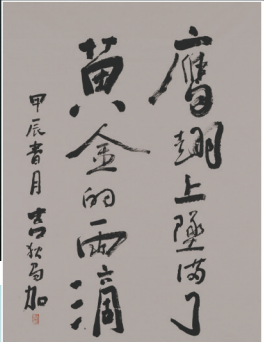 鹰翅上坠满了
黄金的雨滴
甲辰春月 吉狄马加